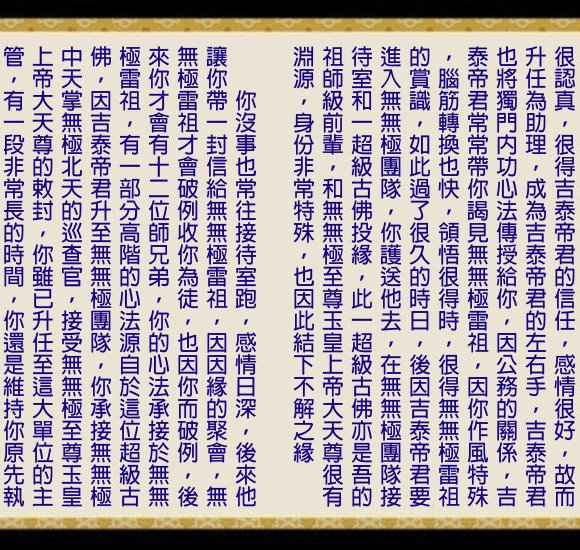 很認真，很得吉泰帝君的信任，感情很好，故而
升任為助理，成為吉泰帝君的左右手，吉泰帝君
也將獨門內功心法傳授給你，因公務的關係，吉
泰帝君常常帶你謁見無無極雷祖，因你作風特殊
，腦筋轉換也快，領悟很得時，很得無無極雷祖
的賞識，如此過了很久的時日，後因吉泰帝君要
進入無無極團隊，你護送他去，在無無極團隊接
待室和一超級古佛投緣，此一超級古佛亦是吾的
祖師級前輩，和無無極至尊玉皇上帝大天尊很有
淵源，身份非常特殊，也因此結下不解之緣
你沒事也常往接待室跑，感情日深，後來他
讓你帶一封信給無無極雷祖，因因緣的聚會，無
無極雷祖才會破例收你為徒，也因你而破例，後
來你才會有十二位師兄弟，你的心法承接於無無
極雷祖，有一部分高階的心法源自於這位超級古
佛，因吉泰帝君升至無無極團隊，你承接無無極
中天掌無極北天的巡查官，接受無無極至尊玉皇
上帝大天尊的敕封，你雖已升任至這大單位的主
管，有一段非常長的時間，你還是維持你原先執